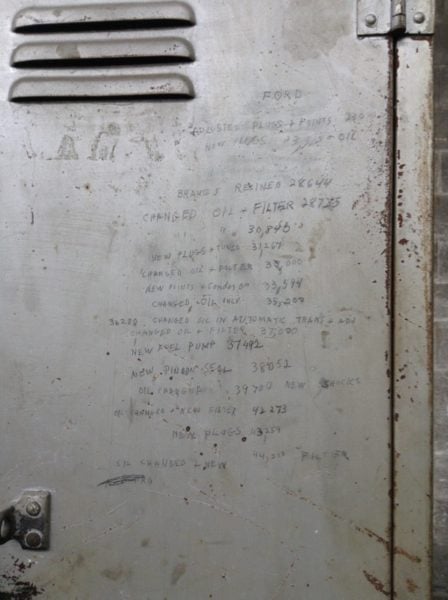 FORD
ADJUSTED PLUGS + POINTS
NEW OIL
BRAKES RELINED 28644
CHANGED OIL + FILTER 28725
" " " 30,845
NEW PLUGS + 31267
CHANGED OIL + FILTER 33,000
NEW POINTS + CONDENSOR 33,594
CHANGED OIL ONLY 35,200
36200 CHANGED OIL IN AUTOMATIC TRANS + ADJ
CHANGED OIL + FILTER 37,000
NEW FUEL PUMP 37492
NEW PINION SEAL 38052
OIL CHANGED 39700 NEW SHOCKS
OIL CHANGED + NEW FILTER 42273
NEW PLUGS 43259
OIL CHANGED + NEW FILTER